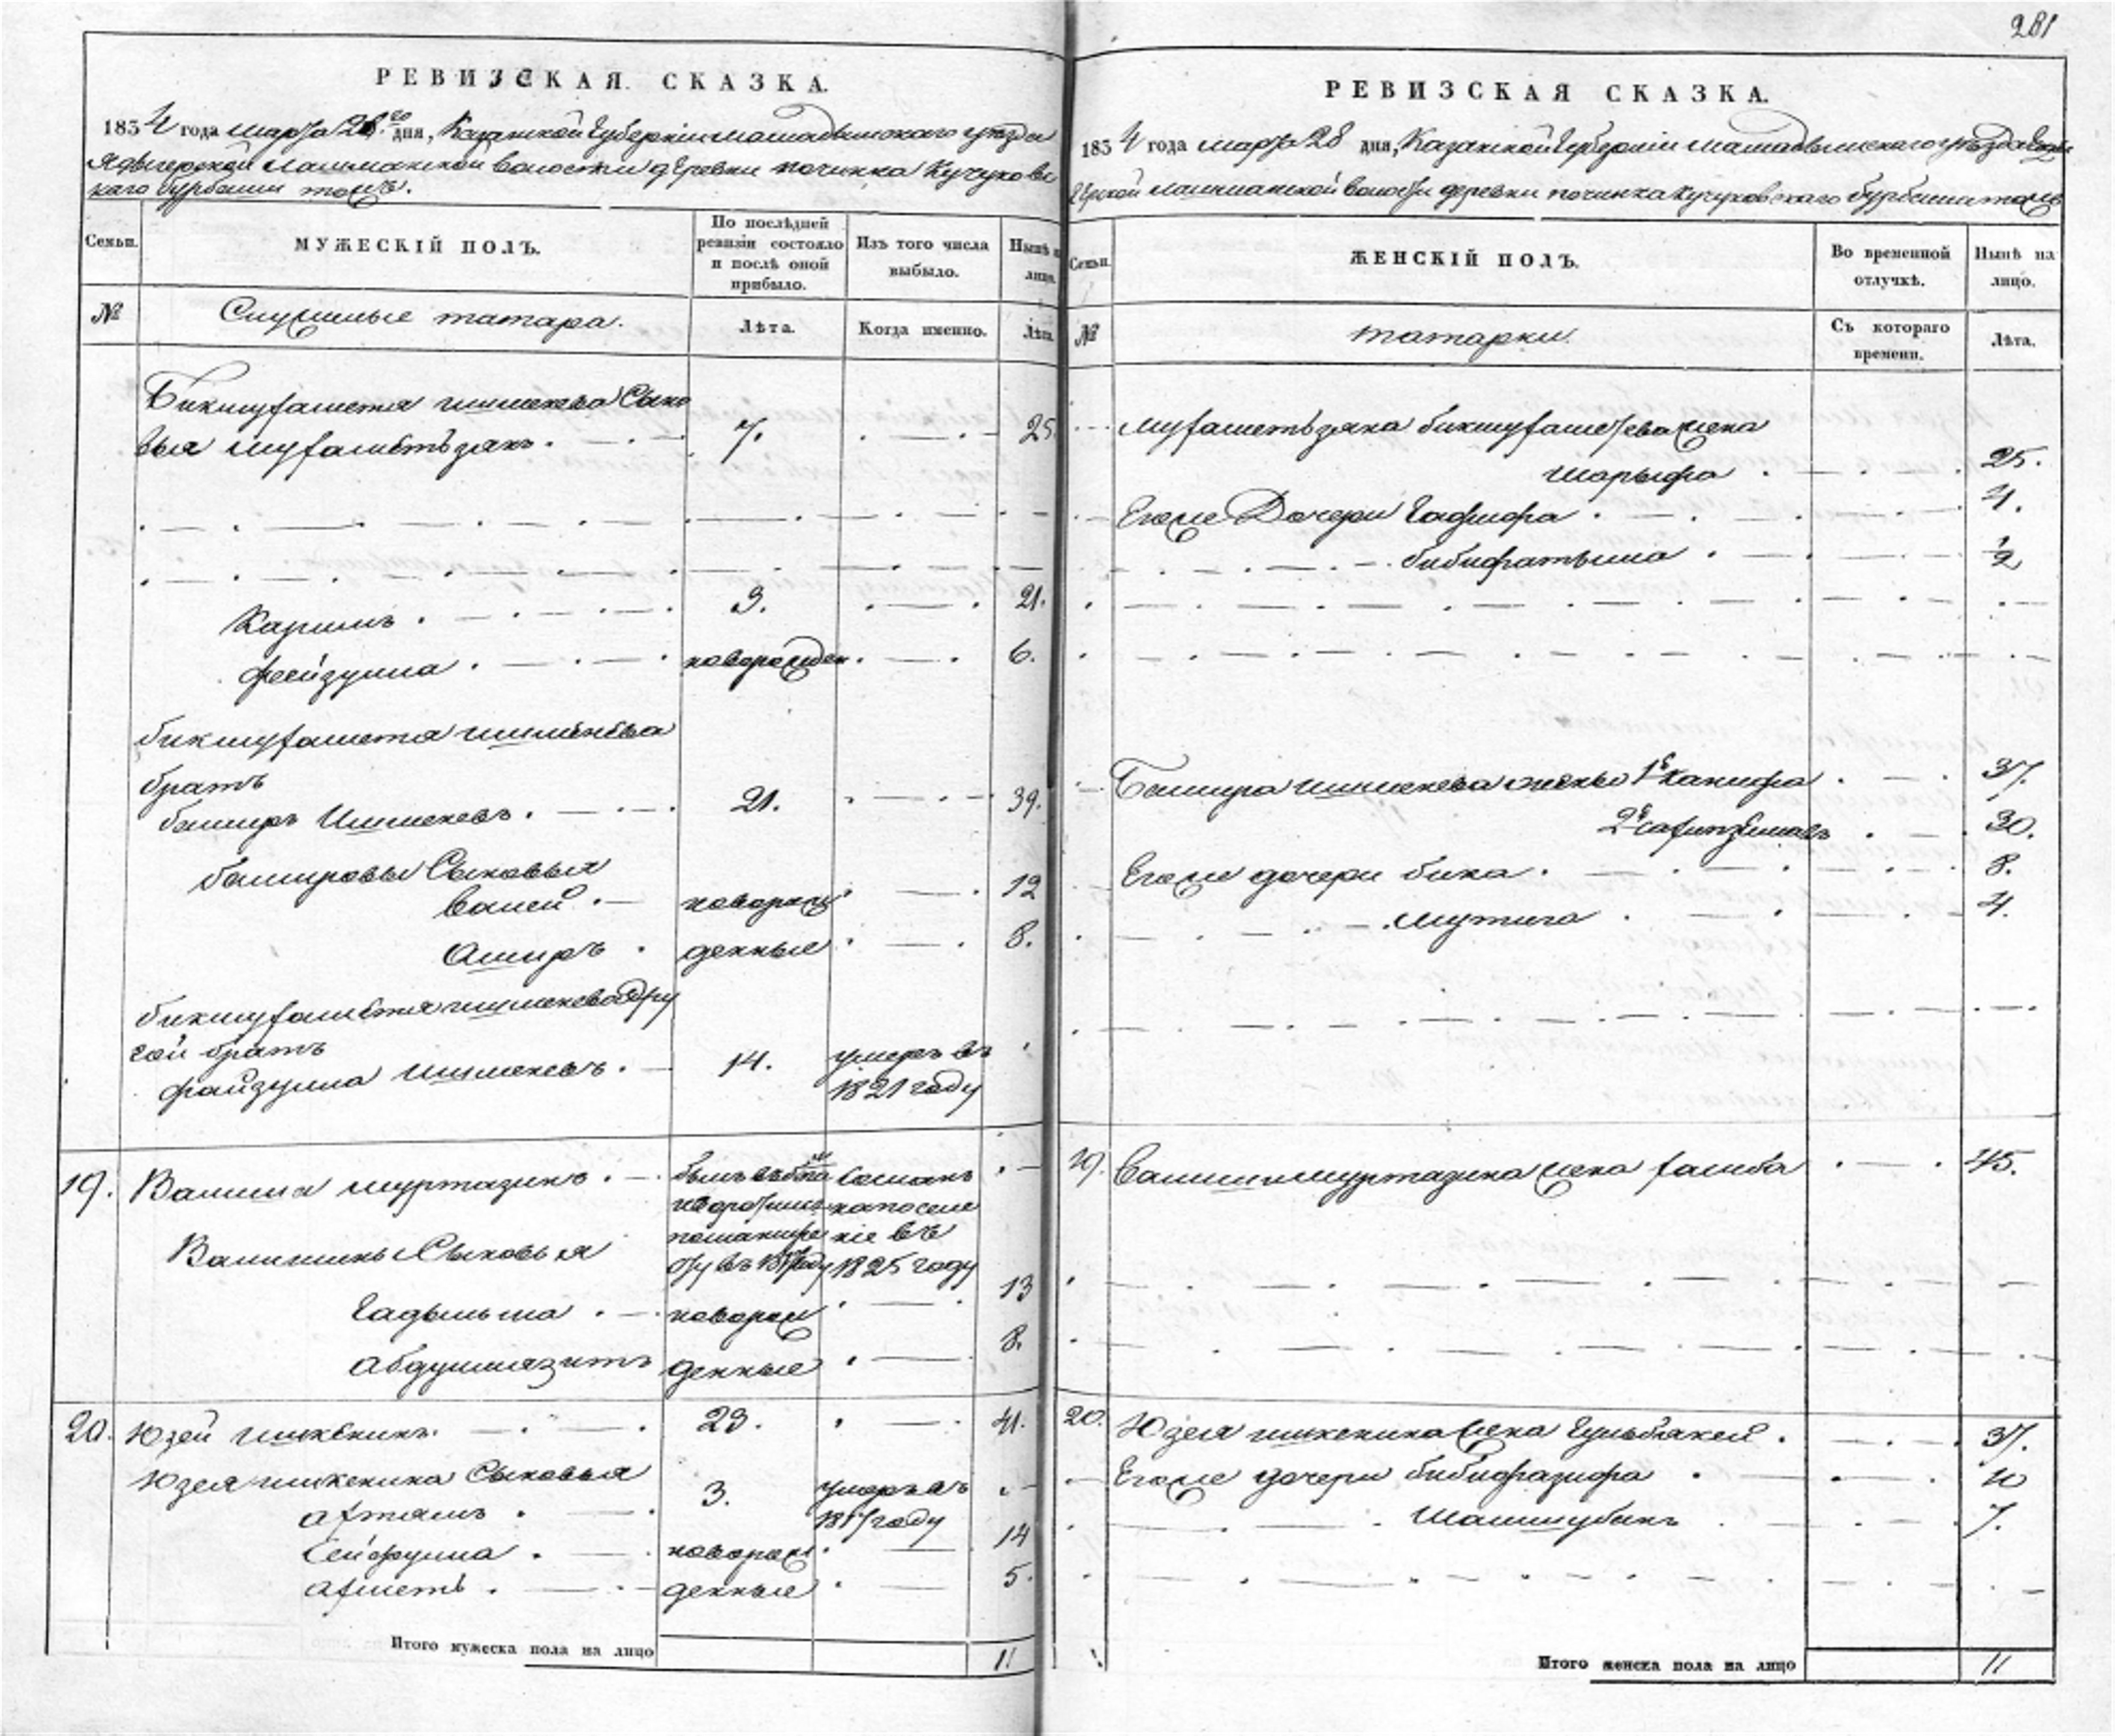 281
РЕВИЗСКАЯ СКАЗКА.
1834 года марта 28го дня, Казанской Губернiи мамадышского уезда
лашманской волости деревни починка Кучуковс
каго бурбаши тожъ.
Семьи.
МУЖЕСКІЙ ПОЛЪ.
По послѣдней ревизіи состояло и послѣ оной прибыло.
Изъ того числа выбыло.
Нынѣ на лицо.
№
Служилые татара.
Лѣта.
Когда именно.
Лѣта.
Бикмухаметя ишменева Сыно
вья мухаметьзянъ. 7. 25.
Каримъ. 3. 21.
фейзулла. новорожден. 6.
бикмухаметя ишменева
братъ
баширъ Ишменевъ. 21. 39.
башировы Сыновья
Валей. новорож 12
Амиръ. денные 8.
бикмухаметя ишменева дру
гой братъ
файзулла ишменевъ. 14. умеръ въ
1821 году
19. Валиша муртазинъ.
сосланъ
на поселе
ніе въ
1825 году
Валишины Сыновья
Гадыльша. новорож 13
абдулмазитъ денные 8.
20. Юзей ишкенинъ. 23. 41.
Юзея ишкенина Сыновья
ахтямъ. 3. умеръ въ
году
Сейфулла. новорож 14
ахметь. денные 5.
Итого мужеска пола на лицо 11
РЕВИЗСКАЯ СКАЗКА.
1834 года марта 28 дня, Казанской Губернiи мамадышскаго уезда
лашманской волости деревни починка кучуковскаго бурбаши тожъ
Семьи.
ЖЕНСКІЙ ПОЛЪ.
Во временной отлучкѣ.
Нынѣ на лицо.
№
татарки.
Съ котораго времени.
Лѣта.
мухаметьзяна бикмухаметева жена
шарыфа. 25.
Егоже Дочери Гафифа. 4.
бибифатыма. 1/2
Башира ишменева жены 1я ханифа. 37.
2я 30.
Егоже дочери бика. 8.
мутига. 4.
19. Валиши муртазина жена хамба. 45.
20. Юзея ишкенина жена Гульбякей. 37.
Егоже дочери бибифазифа. 10
Шамшубань 7.
Итого женска пола на лицо 11